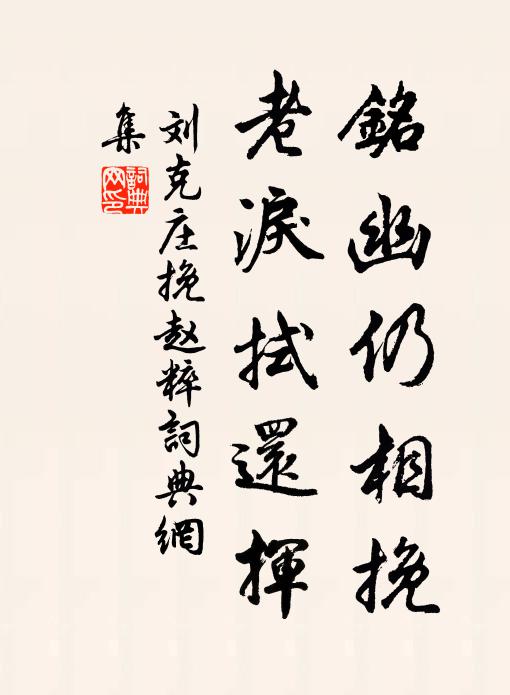 銘幽仍相挽
老淚拭還揮
刘克庄挽赵粹詞典網
集
詞典
网印